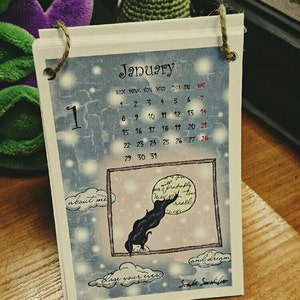 January
SUN MON TUE WED THU FRI SAT
1
1 2 3 4 5 6 7
8 9 10 11 12 13 14
15 16 17 18 19 20 21
22 23 24 25 26 27 28
29 30 31
probably
really
about me
and dream
close your eyes